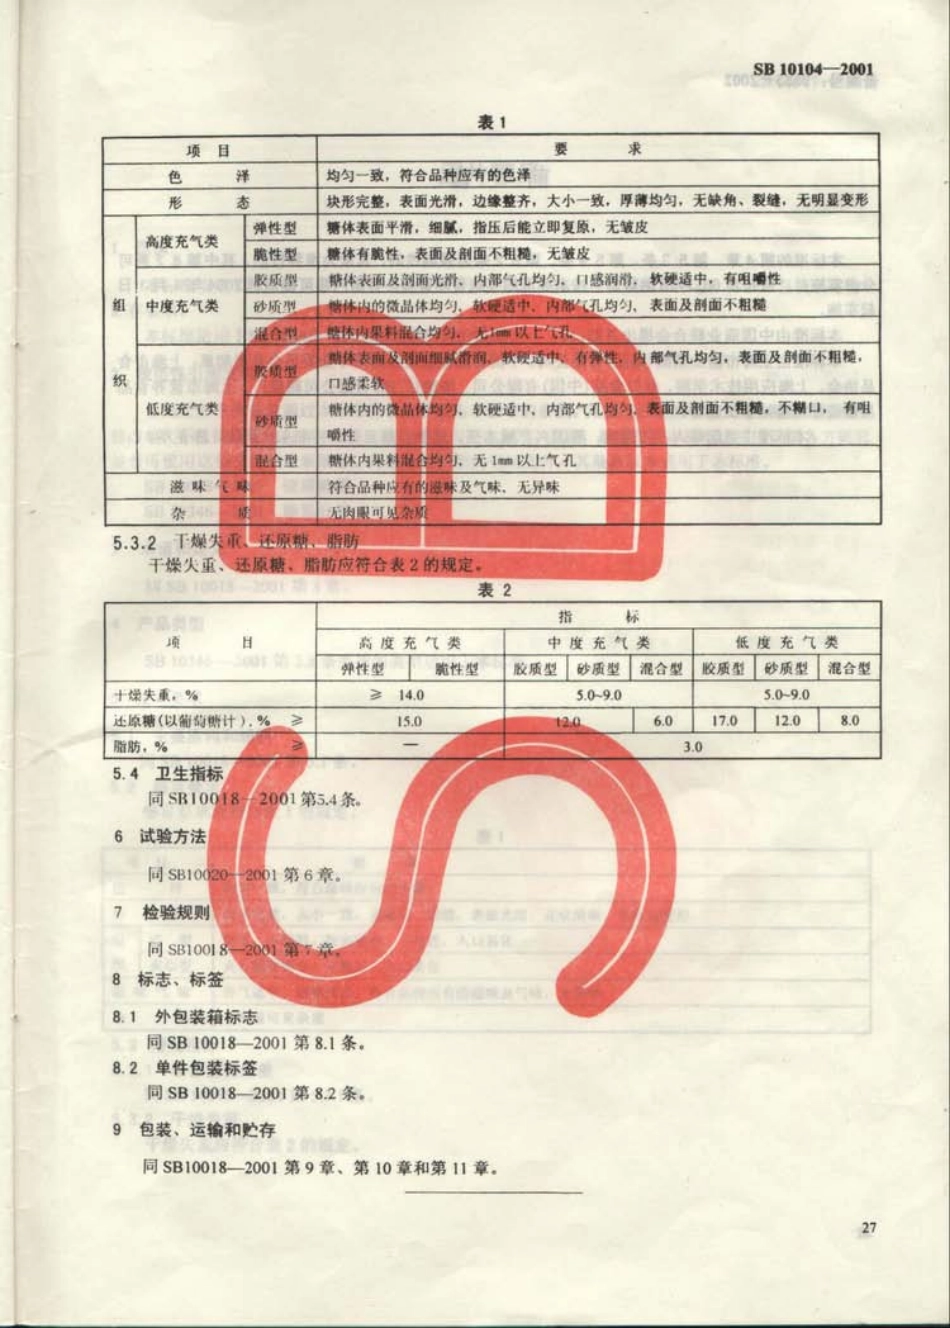 SB 10104—2001
表 1
项 目 要 求
色 泽 均匀一致，符合品种应有的色泽
形 态 块形完整，表面光滑，边缘整齐，大小一致，厚薄均匀，无缺角、裂缝，无明显变形
组织 高度充气类 弹性型 糖体表面平滑，细腻，指压后能立即复原，无皱皮
脆性型 糖体有脆性，表面及剖面不粗糙，无皱皮
中度充气类 胶质型 糖体表面及剖面光滑、内部气孔均匀，口感润滑，软硬适中，有咀嚼性
砂质型 糖体内的微晶体均匀，软硬适中，内部气孔均匀，表面及剖面不粗糙
混合型 糖体内果料混合均匀，无1mm以上气孔
低度充气类 胶质型 糖体表面及剖面细腻滑润，软硬适中，有弹性，内部气孔均匀，表面及剖面不粗糙，
口感柔软
砂质型 糖体内的微晶体均匀，软硬适中，内部气孔均匀，表面及剖面不粗糙，不糊口，有咀
嚼性
混合型 糖体内果料混合均匀，无1mm以上气孔
滋味气味 符合品种应有的滋味及气味，无异味
杂 质 无肉眼可见杂质
5.3.2 干燥失重、还原糖、脂肪
干燥失重、还原糖、脂肪应符合表2的规定。
表 2
项 目 指 标
高度充气类 中度充气类 低度充气类
弹性型 脆性型 胶质型 砂质型 混合型 胶质型 砂质型 混合型
干燥失重，% ≥ 14.0 5.0~9.0 5.0~9.0
还原糖(以葡萄糖计)，% ≥ 15.0 12.0 6.0 17.0 12.0 8.0
脂肪，% ≥ — 3.0
5.4 卫生指标
同SB10018—2001第5.4条。
6 试验方法
同SB10020—2001第6章。
7 检验规则
同SB10018—2001第7章。
8 标志、标签
8.1 外包装箱标志
同 SB 10018—2001 第 8.1 条。
8.2 单件包装标签
同 SB 10018—2001 第 8.2 条。
9 包装、运输和贮存
同SB10018—2001第9章、第10章和第11章。
27